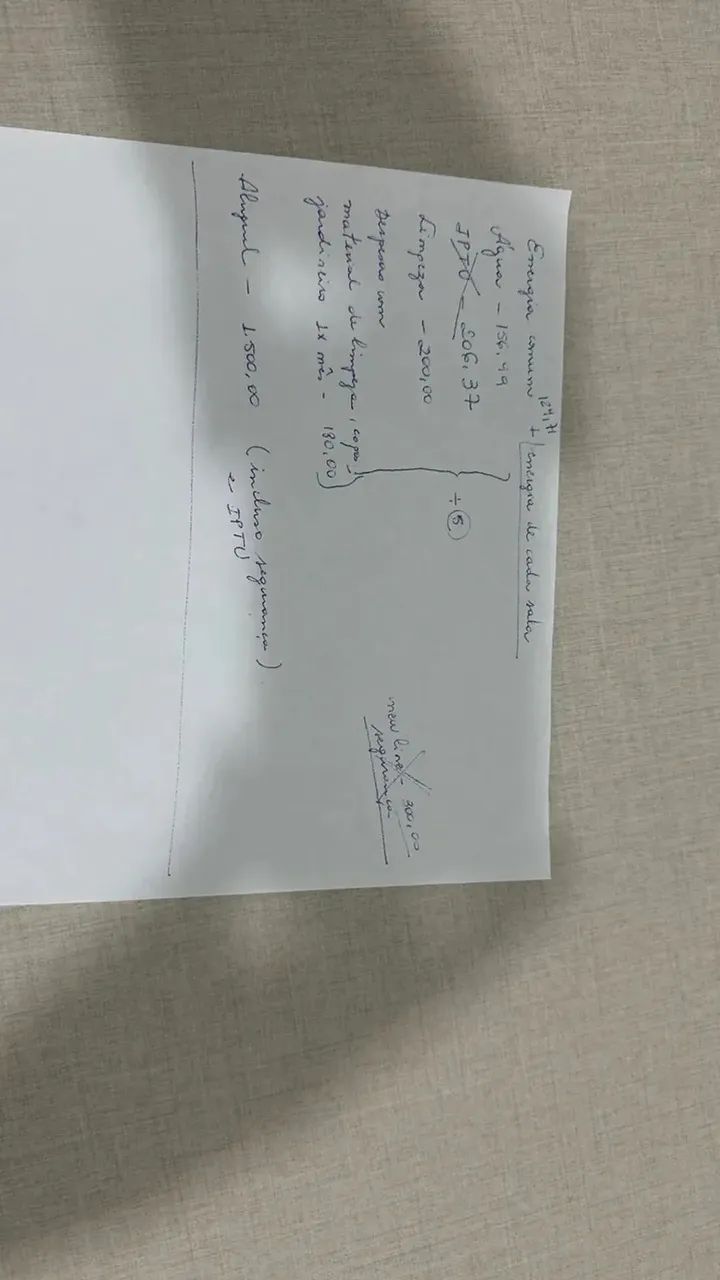 Energia comum 124,71 + energia de cada sala
Água - 156,49
IPTU - 206,37
Limpeza - 200,00
÷ 5
Despesas com
material de limpeza, copa,
jardineiro 1x mês - 180,00
new line - 300,00
segurança
Aluguel - 1.500,00 (incluso segurança
e IPTU)